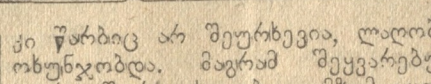 კი წარბიც არ შეურხევია, ლაღობ
ოხუნჯობდა. მაგრამ შეყვარებუ